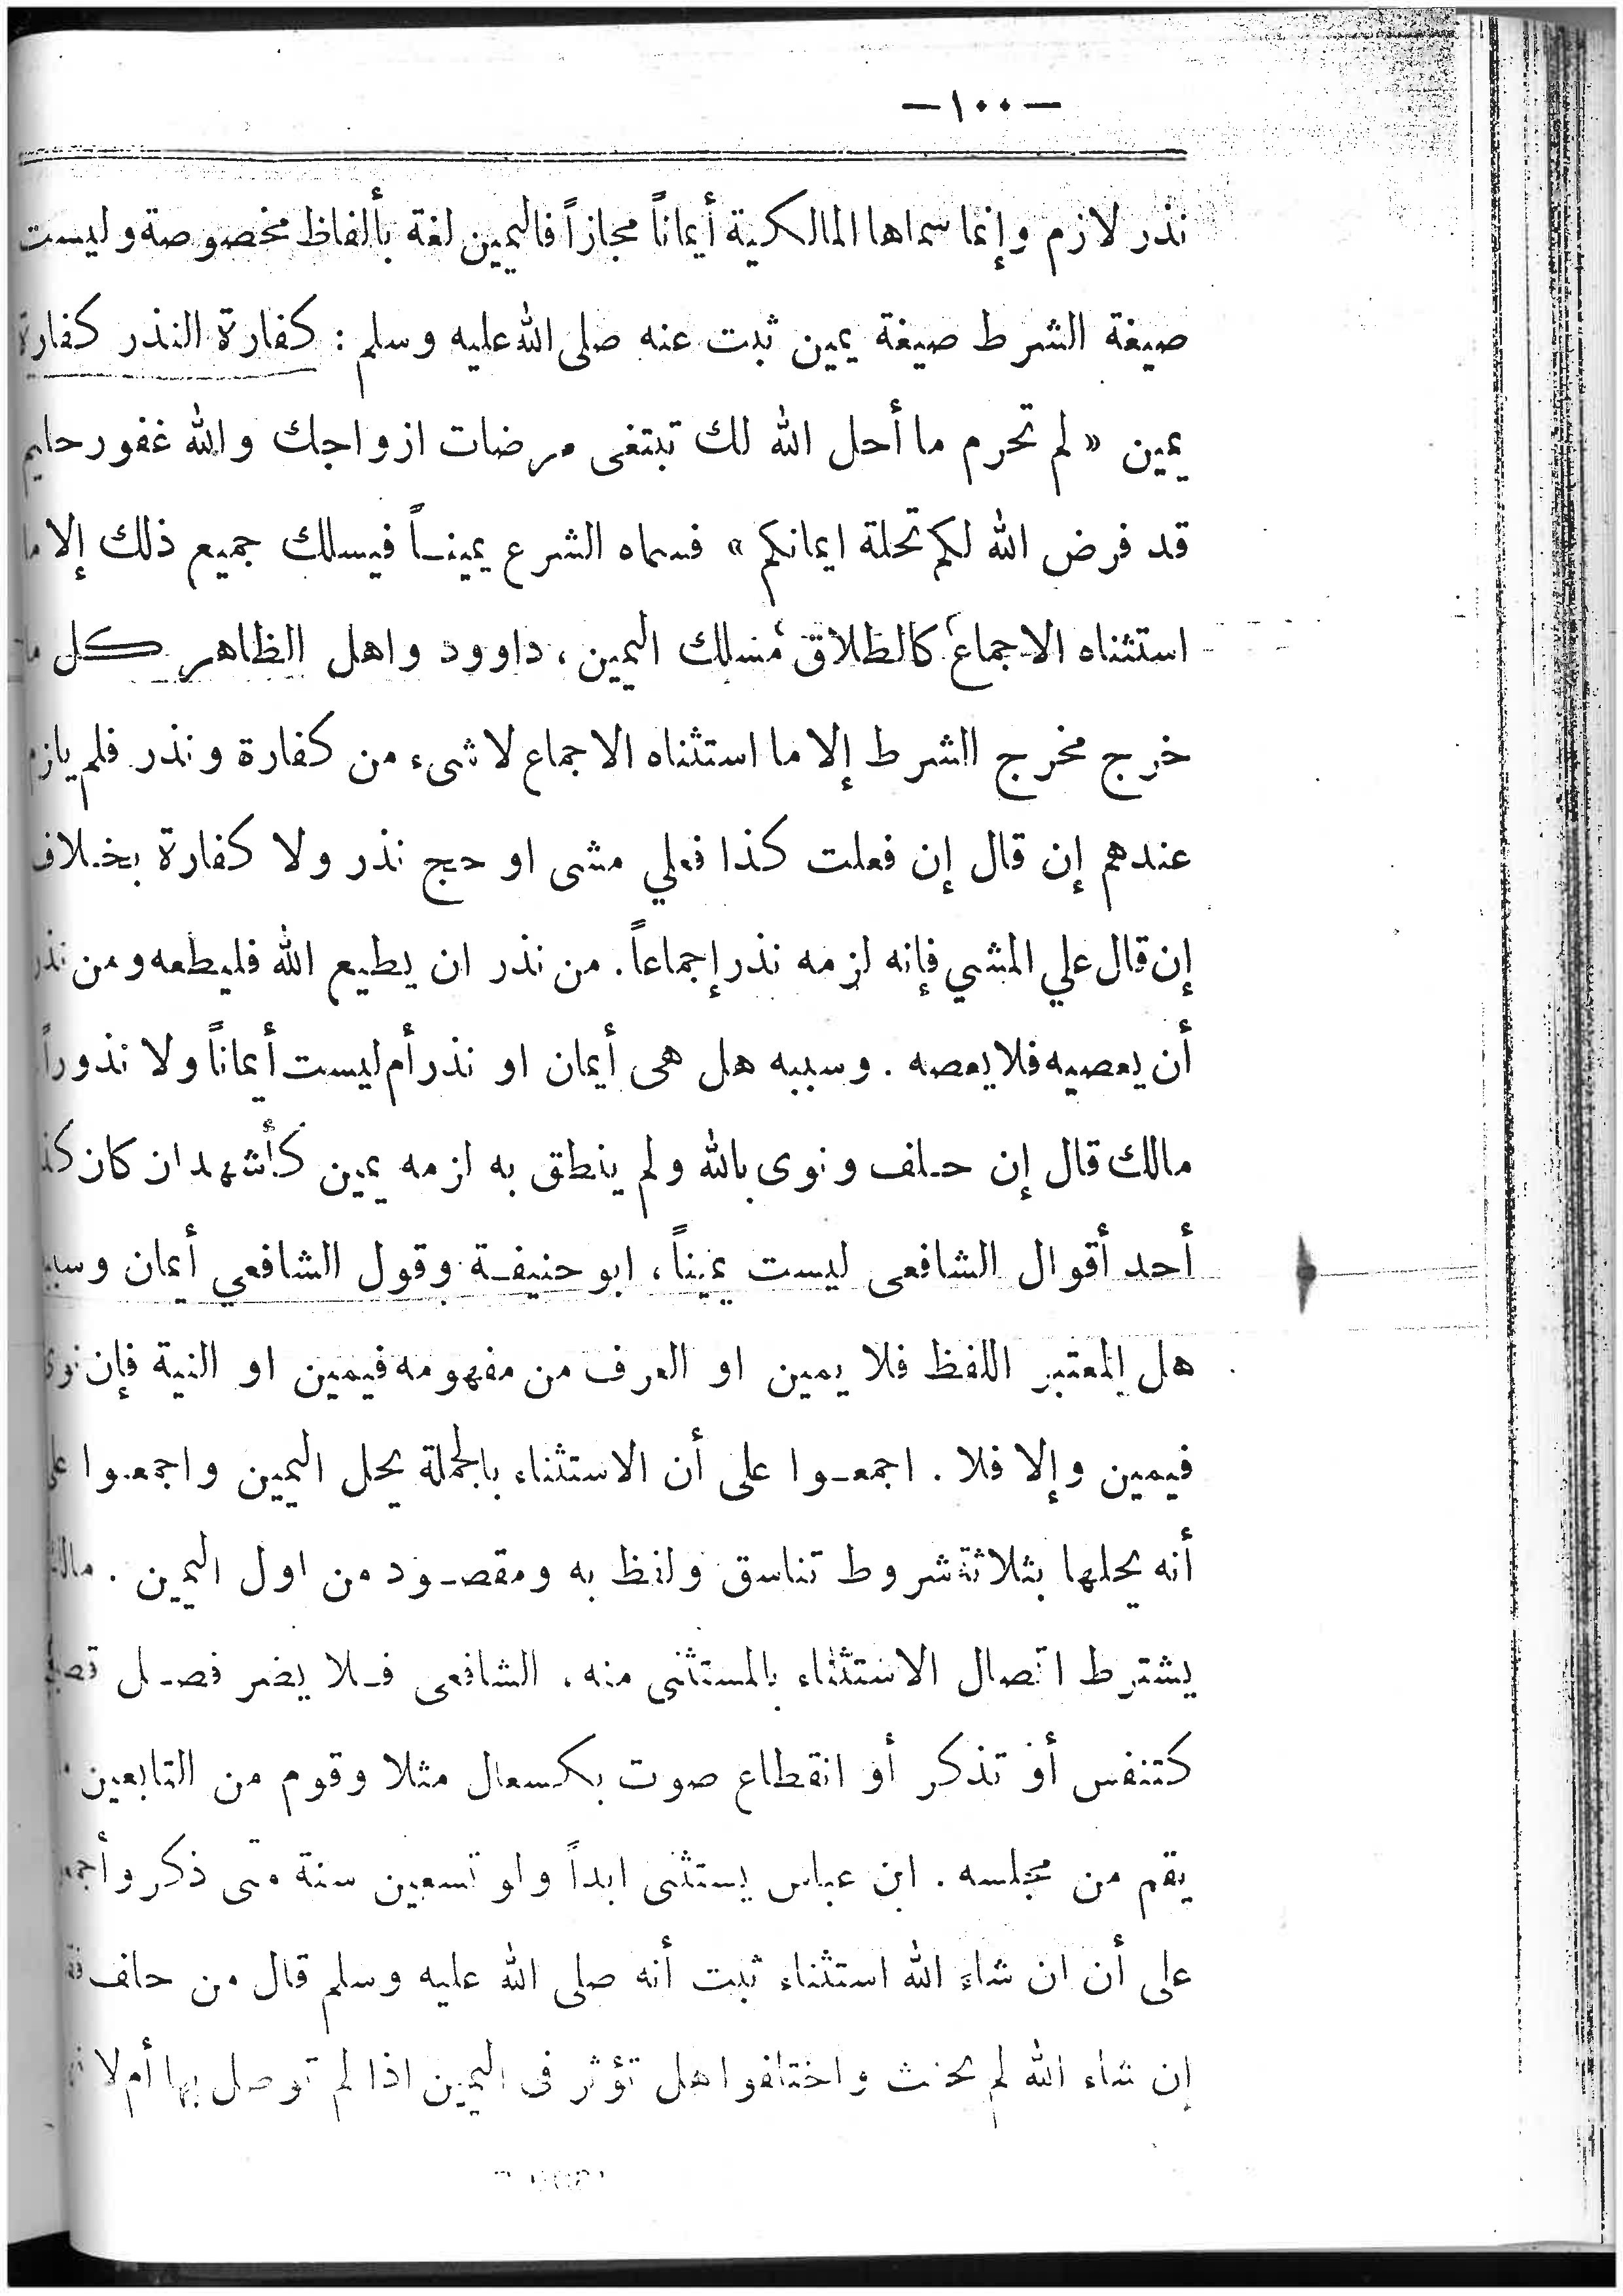 — ١٠٠ —
نذر لازم وإنما سماها المالكية أيماناً مجازاً فاليمين لغة بألفاظ مخصوصة وليست
صيغة الشرط صيغة يمين ثبت عنه صلى الله عليه وسلم : كفارة النذر كفارة
يمين « لم تحرم ما أحل الله لك تبتغى مرضات ازواجك والله غفور رحيم
قد فرض الله لكم تحلة ايمانكم » فسماه الشرع يميناً فيسلك جميع ذلك إلا ما
استثناه الاجماع كالطلاق مسلك اليمين ، داوود واهل الظاهر كل ما
خرج مخرج الشرط إلا ما استثناه الاجماع لا شىء من كفارة ونذر فلم يلزم
عندهم إن قال إن فعلت كذا فعلي مشى او حج نذر ولا كفارة بخلاف
إن قال علي المشي فإنه لزمه نذر إجماعاً . من نذر ان يطيع الله فليطعه ومن نذر
أن يعصيه فلا يعصه . وسببه هل هى أيمان او نذر أم ليست أيماناً ولا نذوراً
مالك قال إن حلف ونوى بالله ولم ينطق به لزمه يمين كأشهد ان كان كذا
أحد أقوال الشافعى ليست يميناً ، ابو حنيفة وقول الشافعي أيمان
هل المعتبر اللفظ فلا يمين او العرف من مفهومه فيمين او النية فإن نوى
فيمين وإلا فلا . اجمعوا على أن الاستثناء بالجملة يحل اليمين واجمعوا على
أنه يحلها بثلاثة شروط تناسق ولفظ به ومقصود من اول اليمين . مالك
يشترط اتصال الاستثناء بالمستثنى منه ، الشافعى فلا يضر فصل
كتنفس أو تذكر أو انقطاع صوت بكسعال مثلا وقوم من التابعين
يقم من مجلسه . ابن عباس يستثنى ابداً ولو تسعين سنة متى ذكر
على أن ان شاء الله استثناء ثبت أنه صلى الله عليه وسلم قال من حلف
إن شاء الله لم يحنث واختلفوا هل تؤثر فى اليمين اذا لم توصل بها أم لا